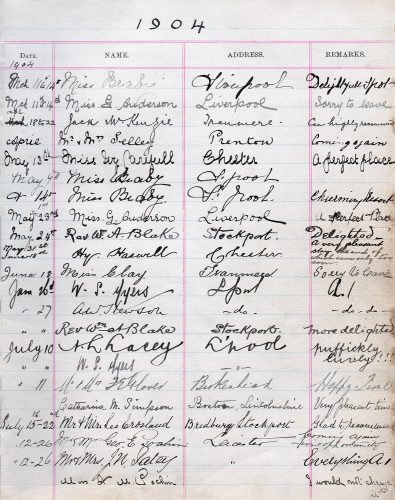 1904
DATE. NAME. ADDRESS. REMARKS.
1904
Mch 11th 14th Miss Bigby L'pool Delightful Spot
Mch 11th 14th Miss G. Anderson Liverpool Sorry to leave
18th 22 Jack McKenzie Tranmere Can highly recommend
Mr & Mrs Selley Prenton Coming again
May 13th Miss Chester A perfect place
May 9th Miss Bigby L'pool
" 14th Miss Bigby L'pool Charming Resort
May 23rd Miss G. Anderson Liverpool A Perfect Place
May 24th Rev W. A. Blake Stockport. Delighted
Hy. Haswell Chester A very pleasant stay
June 18 Miss Clay Tranmere Sorry to leave
June 26th W. S. Ayers L'pool A.1
" 27 A. W. Hewson -do- -do-
" " Rev Wm A Blake Stockport. more delighted
July 10 A. H. Lacey L'pool puffickly lovely!!!
" " W. S. Ayers " "
" 11 Mr & Mrs F. E. Glover Birkenhead Happy
Catharine M. Simpson Boston, Lincolnshire Very pleasant time
July 15-22 Mr & Mrs Leo Crosland Bredbury Stockport Glad to
" 12-26 Mr & Mrs Geo. E. Leicester Coming again opportunity
" 12-26 Mr & Mrs. J. N. " Everything A1
I would not change